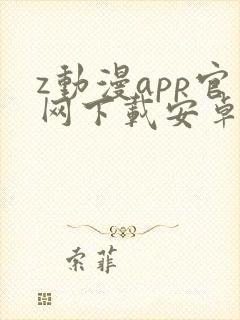 z動漫app官
网下載安卓
索菲